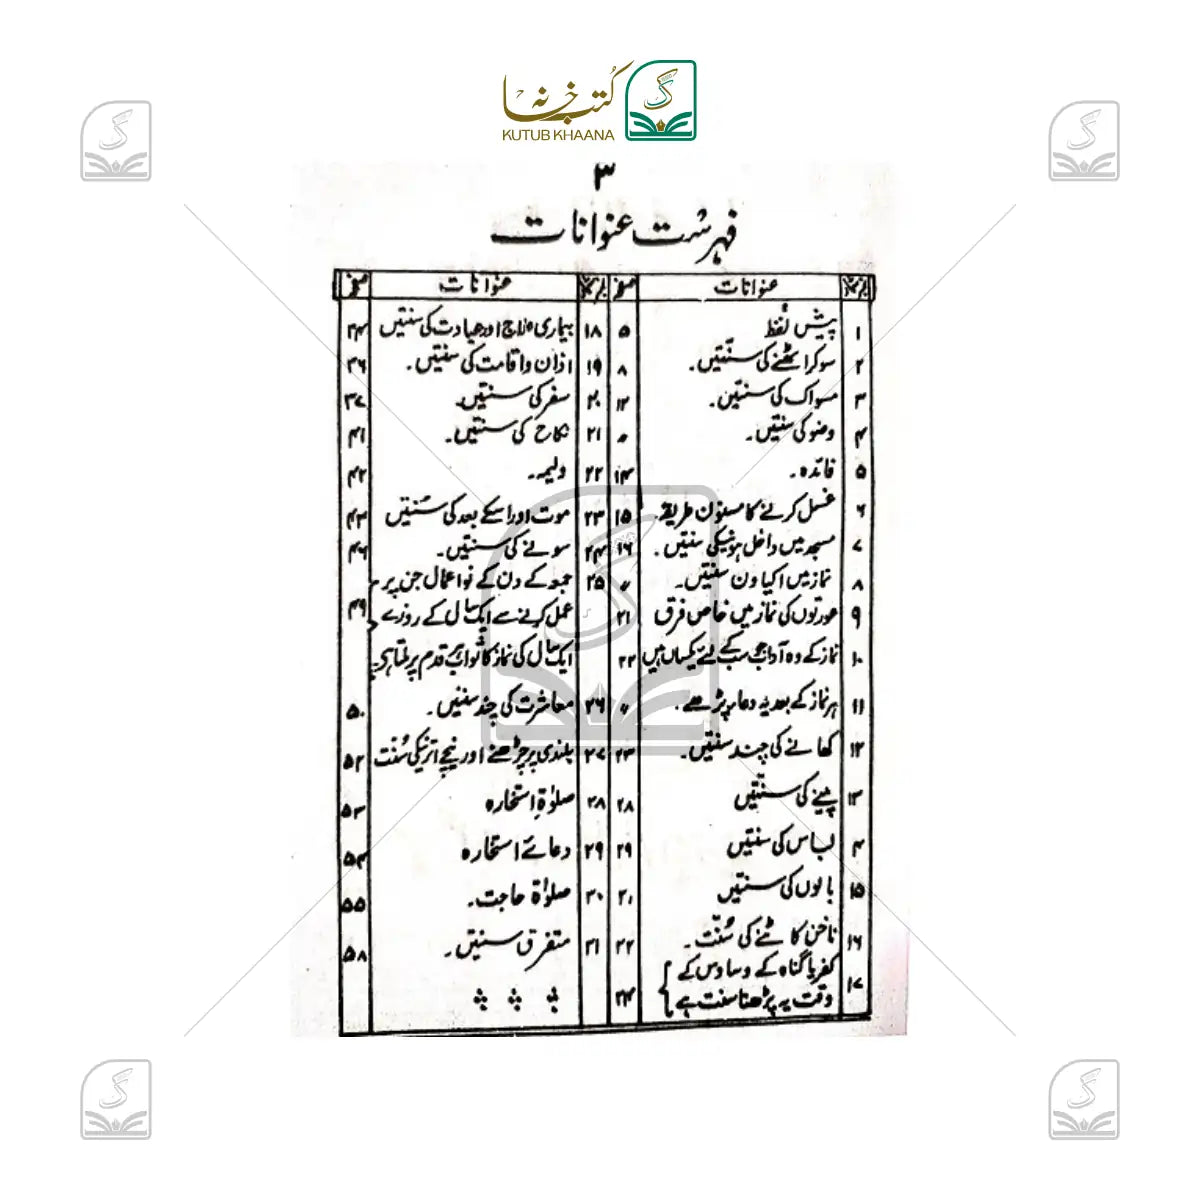 کتب خانہ
KUTUB KHAANA
۳
فہرست عنوانات
عنوانات صفحہ
۱ پیش لفظ ۵
۲ سوکر اٹھنے کی سنتیں۔ ۸
۳ مسواک کی سنتیں۔ ۱۲
۴ وضو کی سنتیں۔ 〃
۵ فائدہ۔ ۱۴
۶ غسل کرنے کا مسنون طریقہ۔ ۱۵
۷ مسجد میں داخل ہونیکی سنتیں۔ ۱۶
۸ نماز میں اکیاون سنتیں۔ 〃
۹ عورتوں کی نماز میں خاص فرق ۲۱
۱۰ نماز کے وہ آداب جو سب کے لئے یکساں ہیں ۲۲
۱۱ ہر نماز کے بعد یہ دعا پڑھے۔ 〃
۱۲ کھانے کی چند سنتیں۔ ۲۳
۱۳ پینے کی سنتیں ۲۸
۴ لباس کی سنتیں ۲۹
۱۵ بالوں کی سنتیں
۱۶ ناخن کاٹنے کی سُنّت۔
۱۷ کفر یا گناہ کے وساوس کے
وقت یہ پڑھنا سنت ہے
عنوانات صفحہ
۱۸ بیماری علاج اور عیادت کی سنتیں
۱۹ اذان واقامت کی سنتیں۔ ۳۶
۲۰ سفر کی سنتیں۔ ۳۷
۲۱ نکاح کی سنتیں۔ ۴۱
۲۲ ولیمہ۔ ۴۲
۲۳ موت اور اسکے بعد کی سُنتیں ۴۳
۲۴ سونے کی سنتیں۔ ۴۶
۲۵ جمعہ کے دن کے نو اعمال جن پر
عمل کرنے سے ایک سال کے روزے ۴۹
ایک سال کی نماز کا ثواب ہر قدم پر ملتا ہی
۲۶ معاشرت کی چند سنتیں۔ ۵۰
۲۷ بلندی پر چڑھنے اور نیچے اترنیکی سُنّت ۵۲
۲۸ صلوٰۃِ استخارہ ۵۳
۲۹ دعائے استخارہ ۵۴
۳۰ صلوٰۃ حاجت۔ ۵۵
۳۱ متفرق سنتیں۔ ۵۸